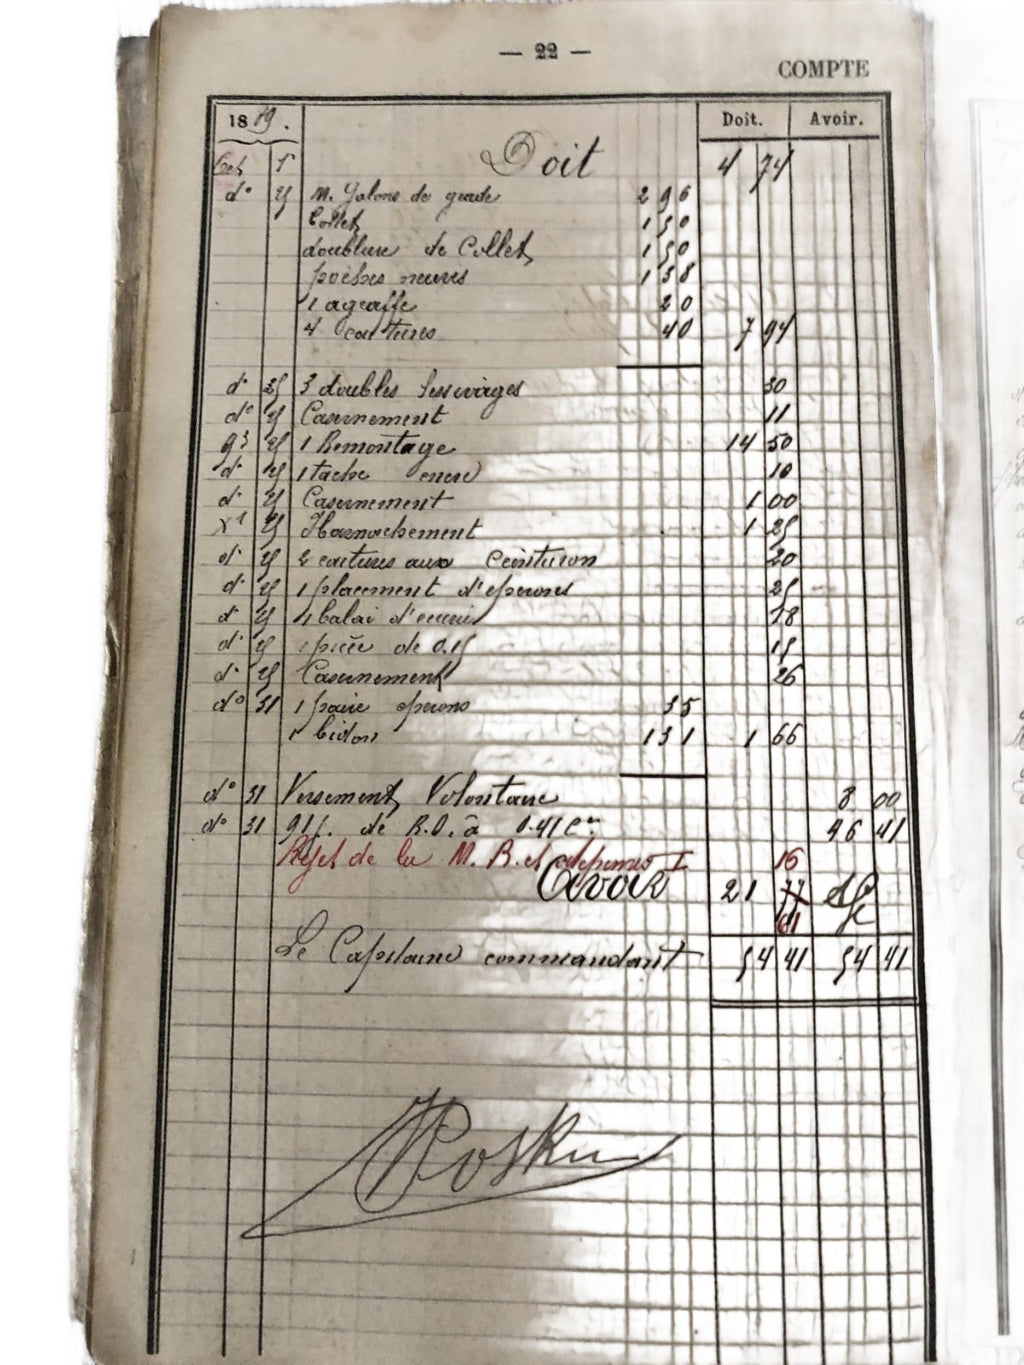 — 22 —
COMPTE
1889. Doit. Avoir.
Oct 1er Doit 4 74
do " M. Galons de grade 2 96
Collet 1 50
doublure de Collet 1 50
pièces neuves 1 38
1 agraffe 20
4 coutures 40 7 94
do " 3 doubles lessivages 30
do " Casernement 11
9bre " 1 Remontage 14 50
do " 1 tache encre 10
do " Casernement 1 00
Xbre " Harnachement 1 25
do " 2 coutures aux Ceinturon 20
do " 1 placement d'eperons 25
do " 1 balai d'ecurie 78
do " 1 pièce de 0.15 15
do " Casernement 26
do 31 1 paire eperons 35
1 bidon 1 31 1 66
do 31 Versement Volontaire 8 00
do 31 91 j. de à 0.41 46 41
de la M. R. et 16
Avoir 21 77
61
Le Capitaine commandant 54 41 54 41